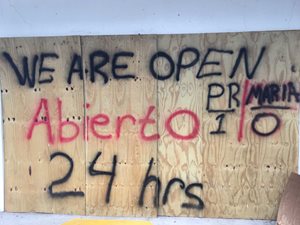 WE ARE OPEN
PR MARIA
Abierto 1 0
24 hrs